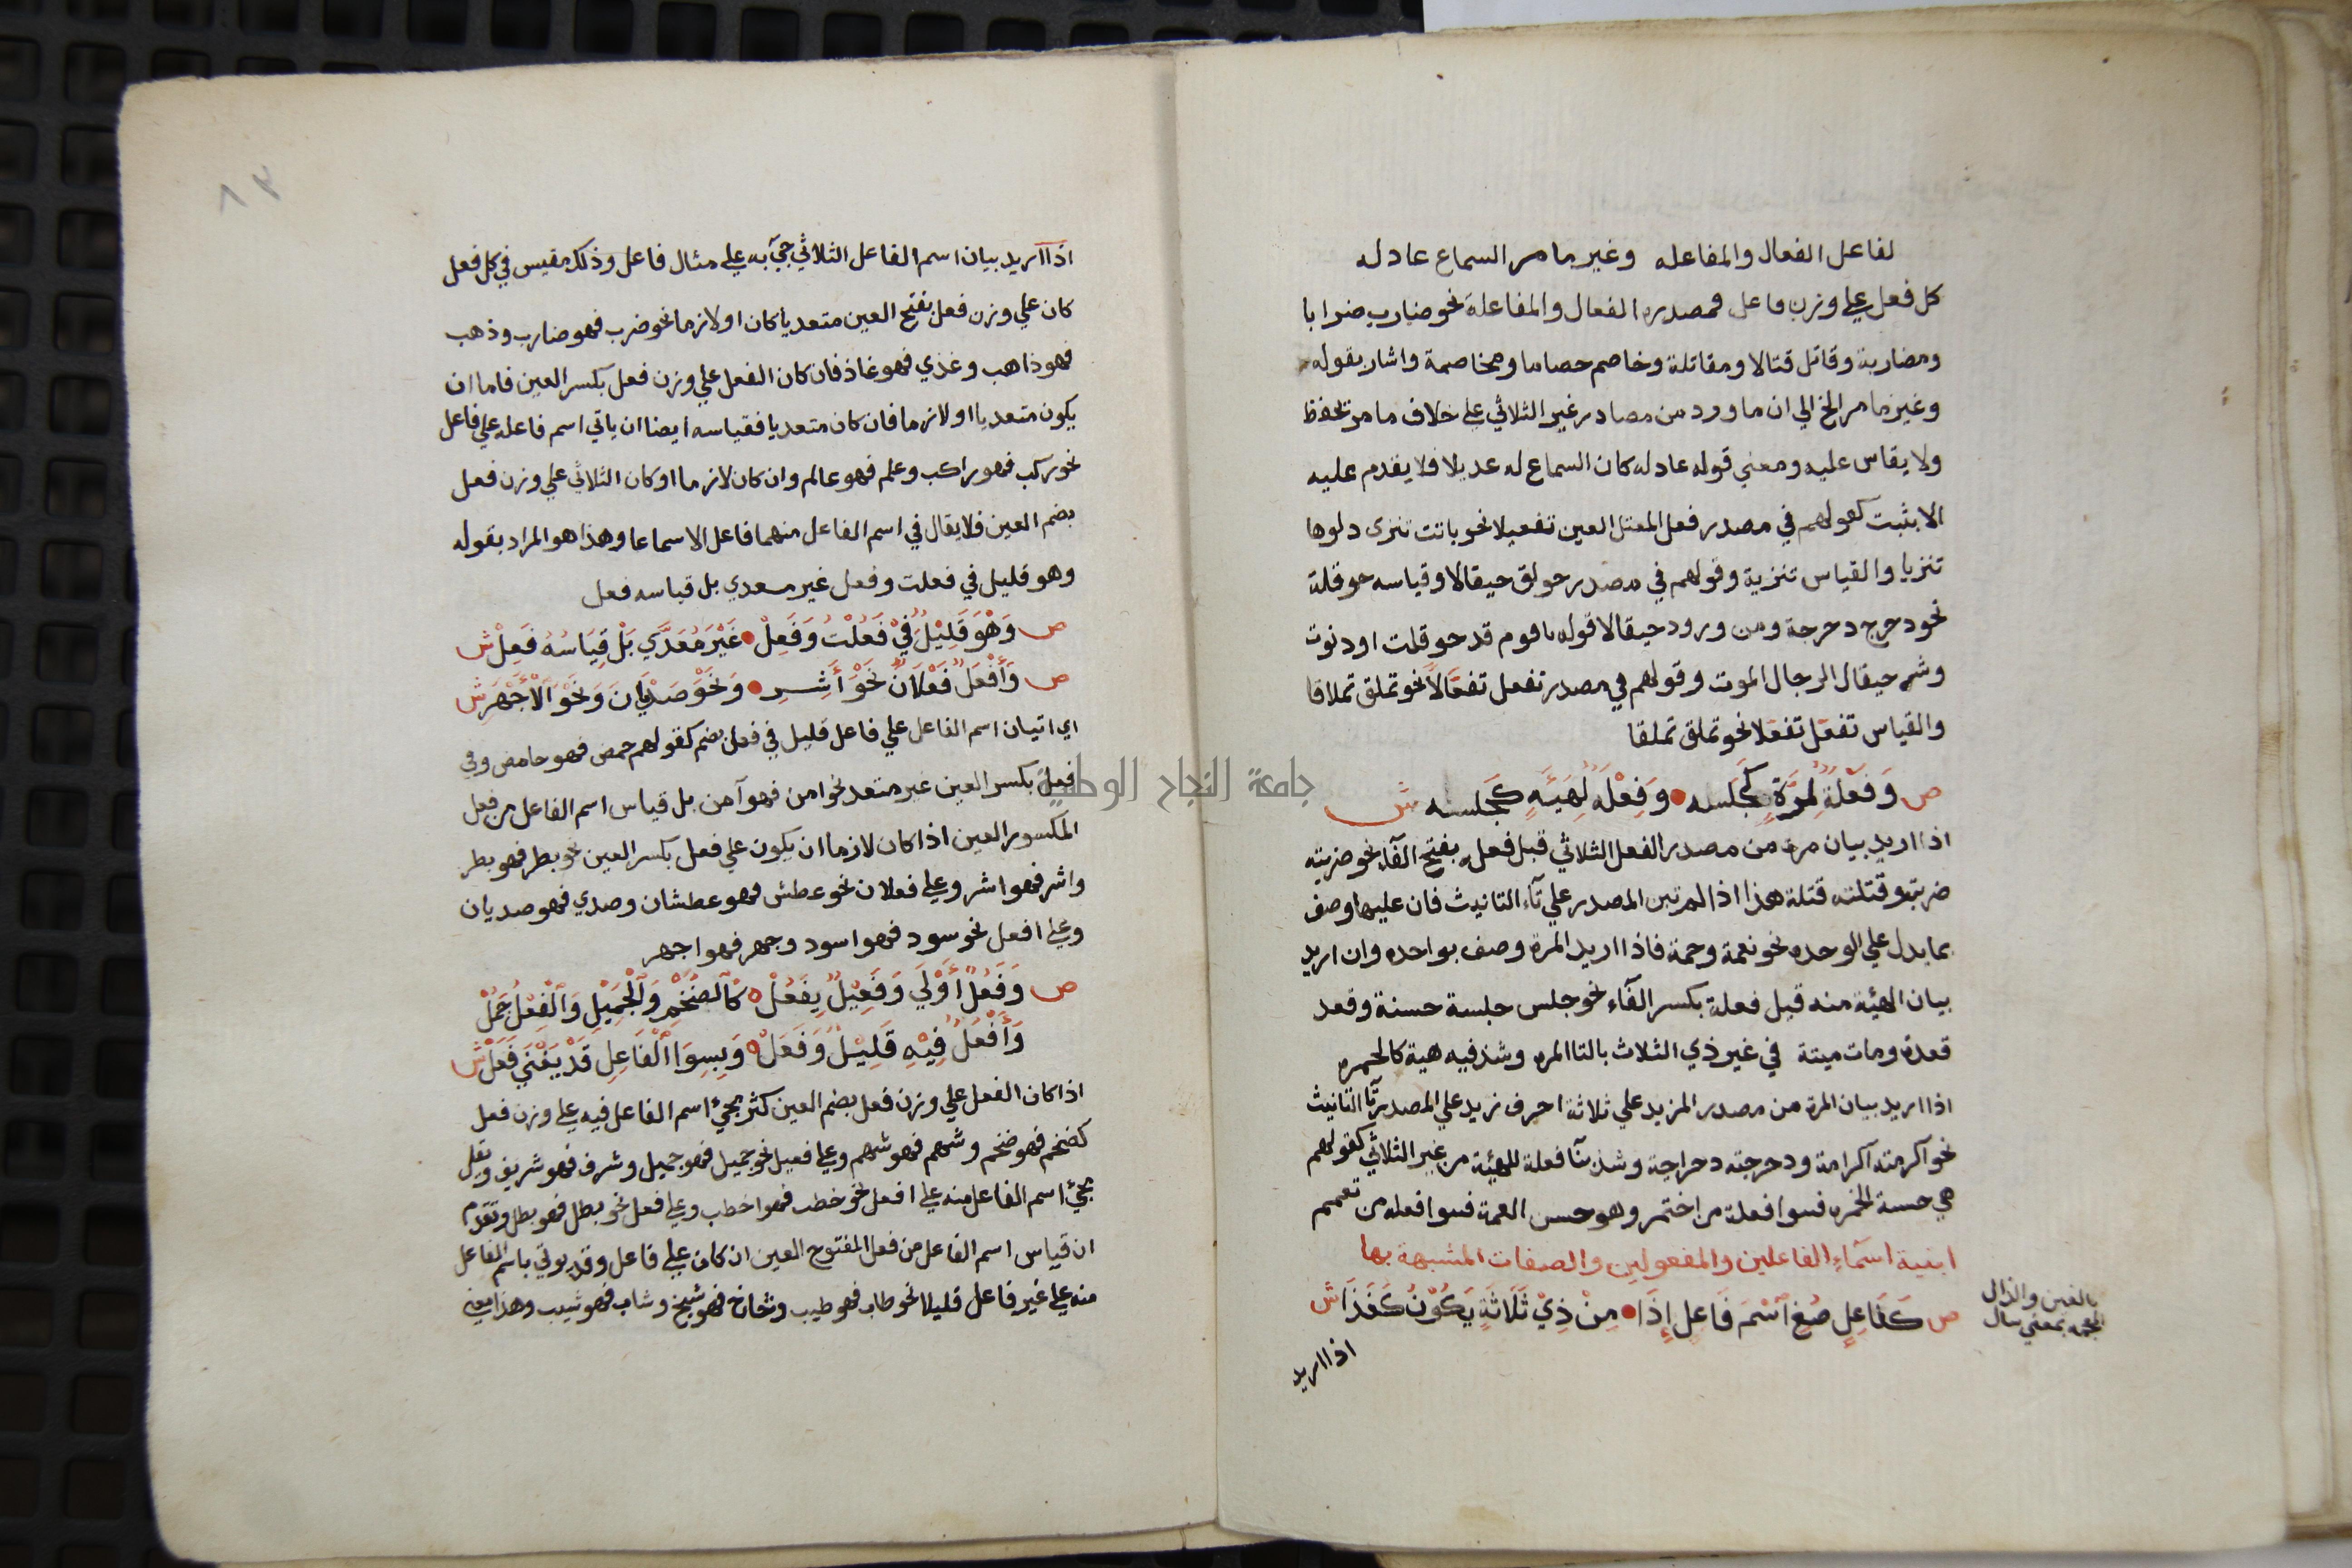 لفاعل الفعال والمفاعله وغير ما مر السماع عادله
كل فعل على وزن فاعل فمصدره الفعال والمفاعلة نحو ضارب ضرابا
ومضاربة وقاتل قتالا ومقاتلة وخاصم خصاما ومخاصمة واشار بقوله
وغير ما مر الخ الي ان ما ورد من مصادر غير الثلاثي علي خلاف ما مر تحفظ
ولا يقاس عليه ومعني قوله عادله كان السماع له عديلا فلا يقدم عليه
الا بثبت كقولهم في مصدر فعل المعتل العين تفعيلا نحو باتت تنزى دلوها
تنزيا والقياس تنزية وقولهم في مصدر حولق حيقالا وقياسه حوقلة
نحو دحرج دحرجة ومن ورود حيقالا قوله يا قوم قد حوقلت او دنوت
وشر حيقال الرجال الموت وقولهم في مصدر تفعل تفعالا نحو تملق تملاقا
والقياس تفعل تفعلا نحو تملق تملقا
ص وَفَعْلَةٌ لِمَرَّةٍ كَجَلسه • وَفِعْلَةٌ لِهَيْئَةٍ كَجلسه ش
اذا اريد بيان مرة من مصدر الفعل الثلاثي قبل فعله بفتح الفآء نحو ضربته
ضربة وقتلته قتلة هذا اذا لم تبن المصدر علي تآء التانيث فان عليها وصف
بما يدل علي الوحده نحو نعمة وحمة فاذا اريد المرة وصف بواحده وان اريد
بيان الهيئة منه قبل فعلة بكسر الفآء نحو جلس جلسة حسنة وقعد
قعدة ومات ميتة في غير ذي الثلاث بالتا المره وشذ فيه هية كالخمره
اذا اريد بيان المرة من مصدر المزيد علي ثلاثة احرف زيد علي المصدر تآ التانيث
نحو آكرمته آكرامة ودحرجته دحراجة وشذ بنآ فعلة للهيئة من غير الثلاثي كقولهم
هي حسنة الخمرة فبنوا فعلة من اختمر وهو حسن العمة فبنوا فعله من تعمم
ابنية اسمآء الفاعلين والمفعولين والصفات المشبهة بها
ص كَفَاعِلٍ صُغِ آسْمَ فَاعِلٍ إِذَا • مِنْ ذِيْ ثَلَاثَةٍ يَكُوْنُ كَغَذَا ش
بالغين والذال
المعجمة بمعني سال
اذا اريد
٨٣
اذا اريد بيان اسم الفاعل الثلاثي جيَ به علي مثال فاعل وذلك مقيس في كل فعل
كان علي وزن فعل بفتح العين متعديا كان او لازما نحو ضرب فهو ضارب وذهب
فهو ذاهب وغذي فهو غاذ فان كان الفعل علي وزن فعل بكسر العين فاما ان
يكون متعديا او لازما فان كان متعديا فقياسه ايضا ان ياتي اسم فاعله علي فاعل
نحو ركب فهو راكب وعلم فهو عالم وان كان لازما او كان الثلاثي علي وزن فعل
بضم العين فلا يقال في اسم الفاعل منهما فاعل الا سماعا وهذا هو المراد بقوله
وهو قليل في فعلت وفعل غير معدي بل قياسه فعل
ص وَهْوَ قَلِيْلٌ فِيْ فَعُلْتُ وَفَعِلْ • غَيْرَ مُعَدَّي بَلْ قِيَاسُهُ فَعِلْ ش
ص وَأَفْعَلٌ فَعْلَانٌ نَحْوَ أَشِرِ • وَنَحْوَ صَدْيَانَ وَنَحْوَ الْأَجْهَرِ ش
اي اتيان اسم الفاعل علي فاعل قليل في فعل بضم كقولهم حمض فهو حامض وفي
فعل بكسر العين غير متعد نحو امن فهو آمن بل قياس اسم الفاعل من فعل
المكسور العين اذا كان لازما ان يكون علي فعل بكسر العين نحو بطر فهو بطر
واشر فهو اشر وعلي فعلان نحو عطش فهو عطشان وصدي فهو صديان
وعلي افعل نحو سود فهو اسود وجهر فهو اجهر
ص وَفَعْلٌ أَوْلَي وَفَعِيْلٌ بِفَعُلْ • كَآلضَّخْمِ وَآلْجَمِيْلِ وَآلْفِعْلُ جَمُلْ
وَأَفْعَلٌ فِيْهِ قَلِيْلٌ وَفَعَلْ • وَبِسِوَا آلْفَاعِلِ قَدْ يَغْنَي فَعَلْ ش
اذا كان الفعل علي وزن فعل بضم العين كثر مجئ اسم الفاعل فيه علي وزن فعل
كضخم فهو ضخم وشهم فهو شهم وعلي فعيل نحو جميل فهو جميل وشرف فهو شريف ويقل
مجئ اسم الفاعل منه علي افعل نحو خطب فهو اخطب وعلي فعل نحو بطل فهو بطل وتقدم
ان قياس اسم الفاعل من فعل المفتوح العين ان كان علي فاعل وقد يوتي باسم الفاعل
منه علي غير فاعل قليلا نحو طاب فهو طيب وشاخ فهو شيخ وشاب فهو شيب وهذا معني
جامعة النجاح الوطنية